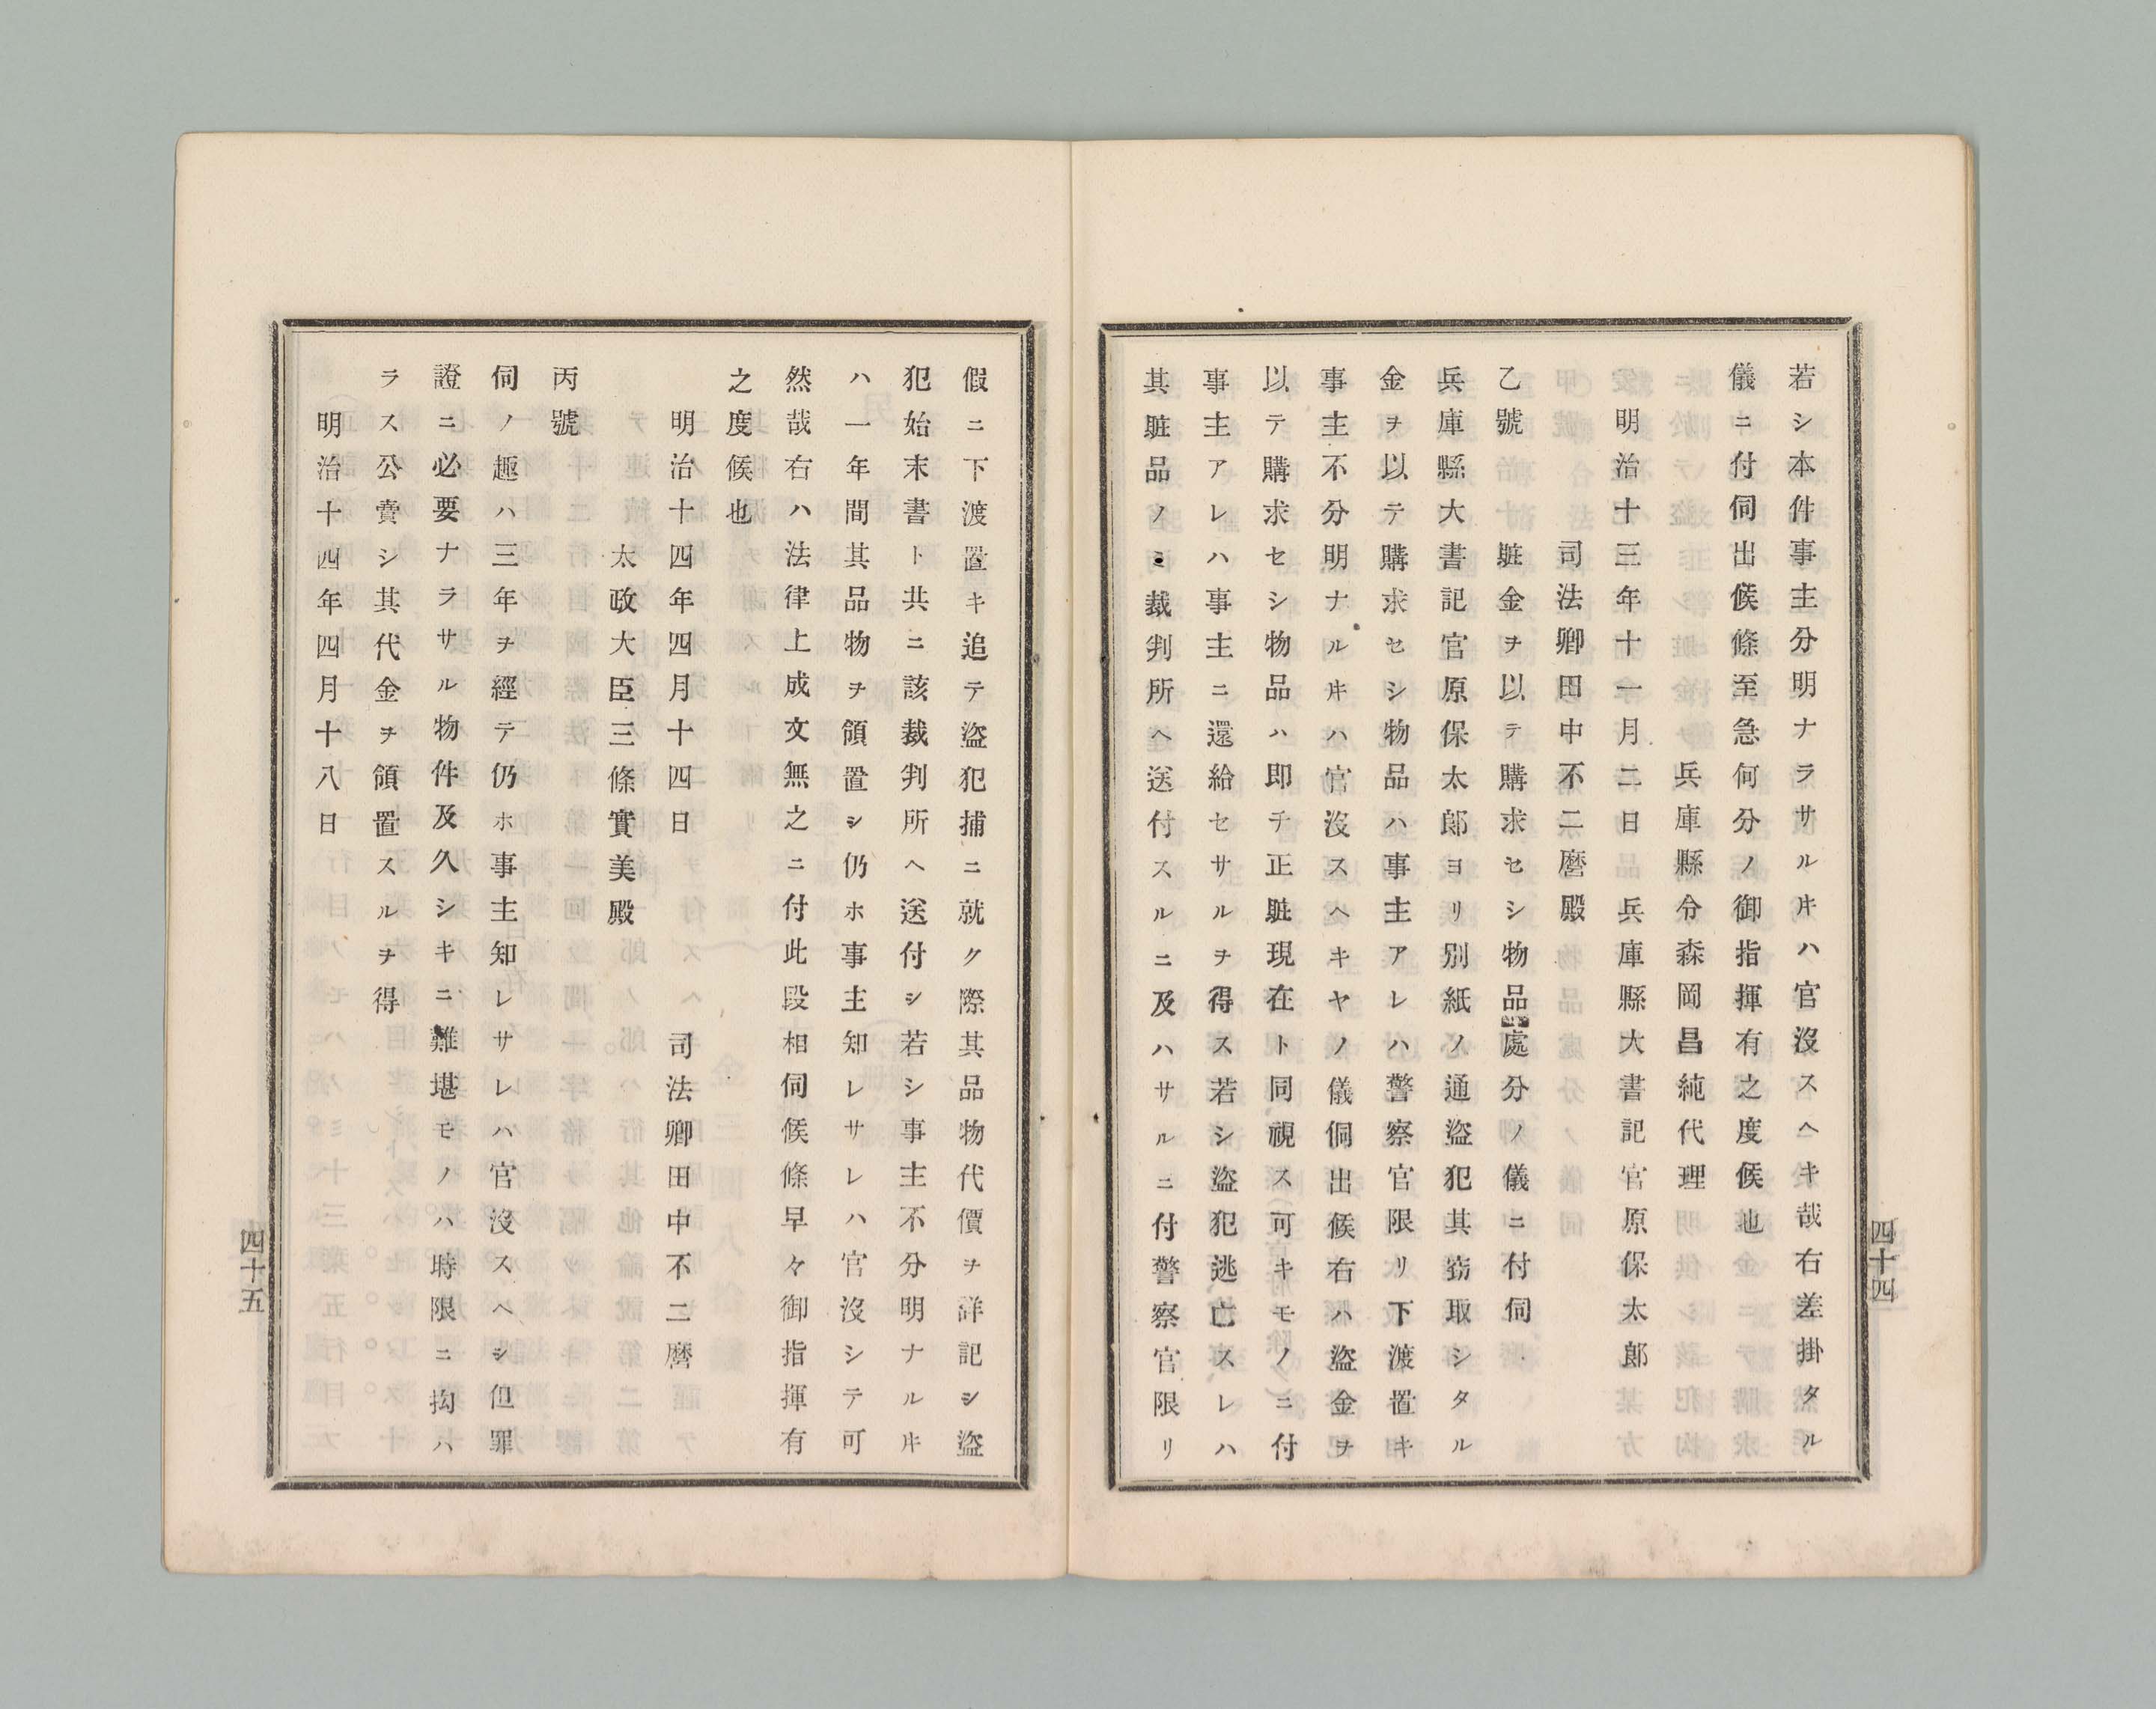 若シ本件事主分明ナラサル𪜈ハ官沒スヘキ哉右差掛タル
儀ニ付伺出候條至急何分ノ御指揮有之度候也
兵庫縣令森岡昌純代理
明治十三年十一月二日 兵庫縣大書記官原保太郎
司法卿田中不二麿殿
乙號 賍金ヲ以テ購求セシ物品處分ノ儀ニ付伺
兵庫縣大書記官原保太郎ヨリ別紙ノ通盜犯其竊取シタル
金ヲ以テ購求セシ物品ハ事主アレハ警察官限リ下渡置キ
事主不分明ナルヰハ官沒スヘキヤノ儀伺出候右ハ盜金ヲ
以テ購求セシ物品ハ即チ正賍現在ト同視ス可キモノニ付
事主アレハ事主ニ還給セサルヲ得ス若シ盜犯逃亡スレハ
其賍品ノミ裁判所ヘ送付スルニ及ハサルニ付警察官限リ
四十四
假ニ下渡置キ追テ盜犯捕ニ就ク際其品物代價ヲ詳記シ盜
犯始末書ト共ニ該裁判所ヘ送付シ若シ事主不分明ナルヰ
ハ一年間其品物ヲ領置シ仍ホ事主知レサレハ官沒シテ可
然哉右ハ法律上成文無之ニ付此段相伺候條早々御指揮有
之度候也
明治十四年四月十四日 司法卿田中不二麿
太政大臣三條實美殿
丙號
伺ノ趣ハ三年ヲ經テ仍ホ事主知レサレハ官沒スヘシ但罪
證ニ必要ナラサル物件及久シキニ難堪モノハ時限ニ拘ハ
ラス公賣シ其代金ヲ領置スルヲ得
明治十四年四月十八日
四十五